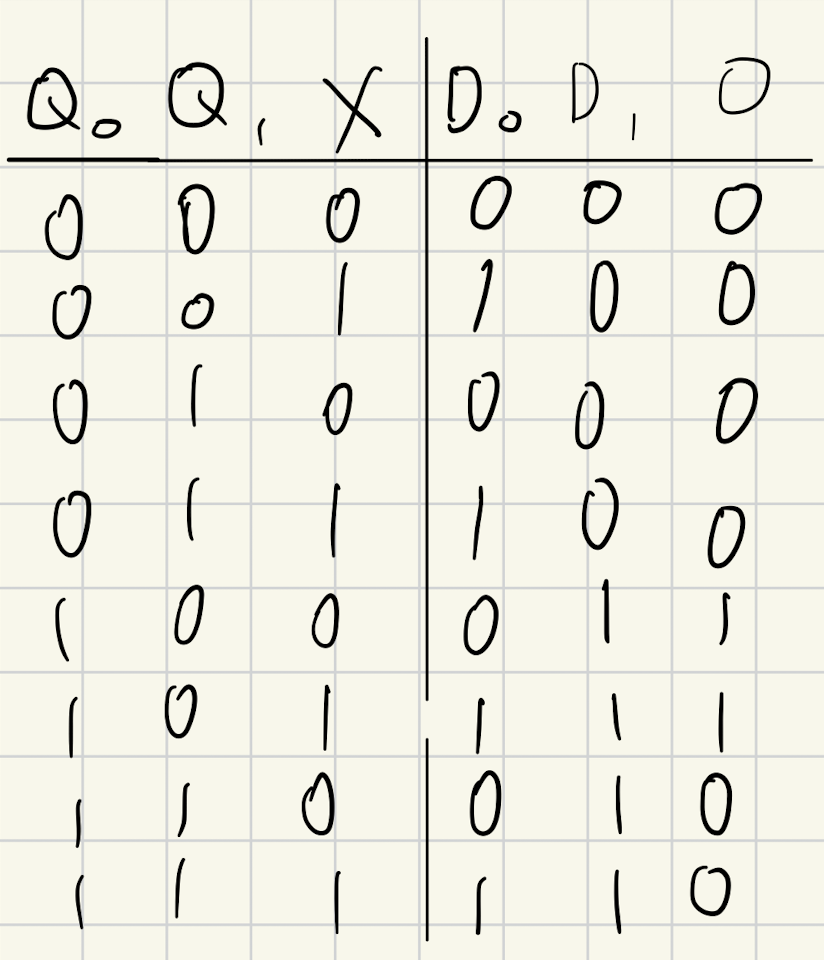 Q₀ Q₁ X D₀ D₁ O
0 0 0 0 0 0
0 0 1 1 0 0
0 1 0 0 0 0
0 1 1 1 0 0
1 0 0 0 1 1
1 0 1 1 1 1
1 1 0 0 1 0
1 1 1 1 1 0